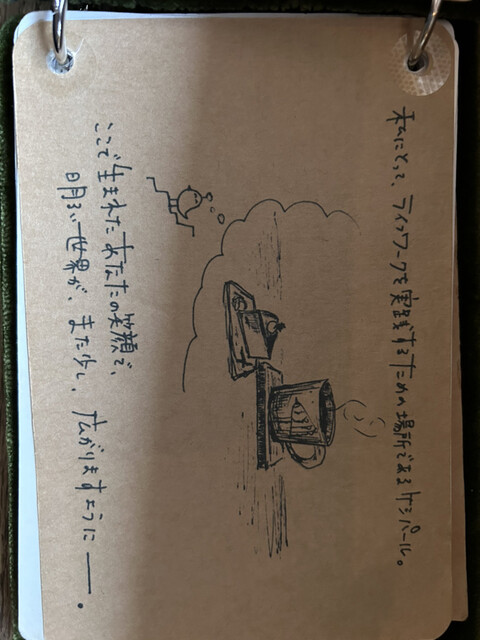 私にとって、ライフワークを実践するための場所であるケシパール。
ここで生まれたあなたの笑顔で、
明るい世界が、また少し、広がりますように――。